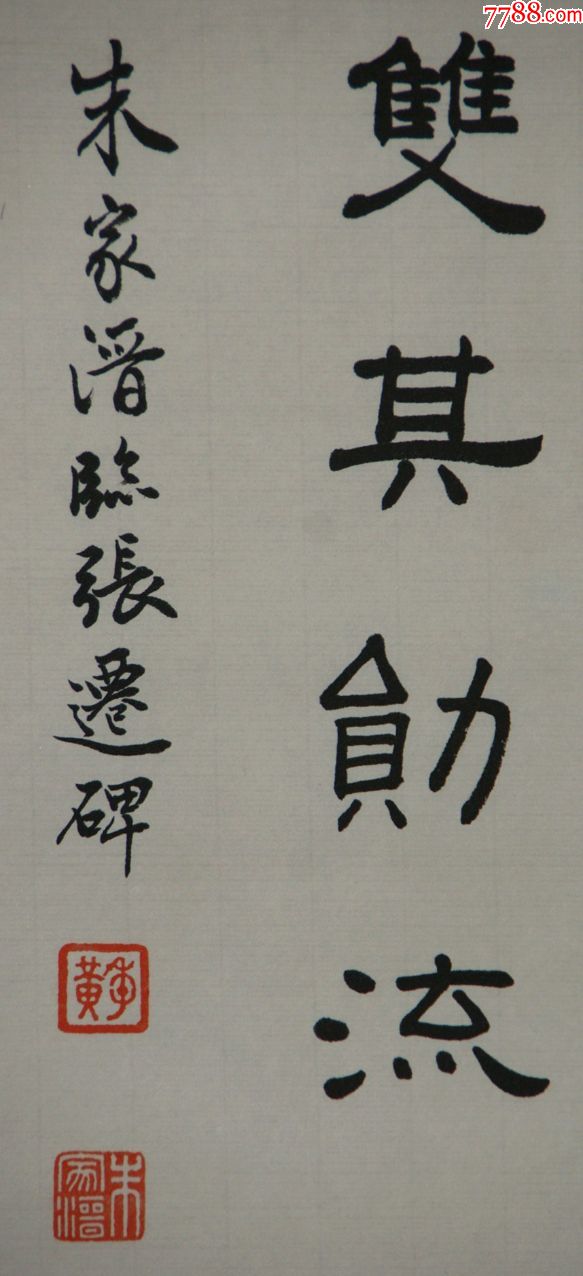 7788.com
雙其勛流
朱家溍臨張遷碑
季黄
朱家溍